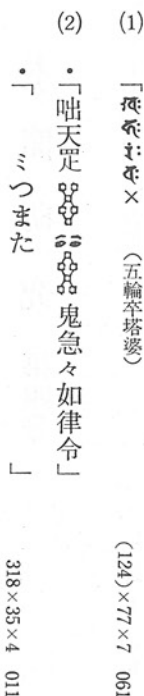 (1) 「×　（五輪卒塔婆）　(124)×77×7　061
(2) ・「咄天罡　鬼急々如律令」
・「　ミつまた　」　318×35×4　011